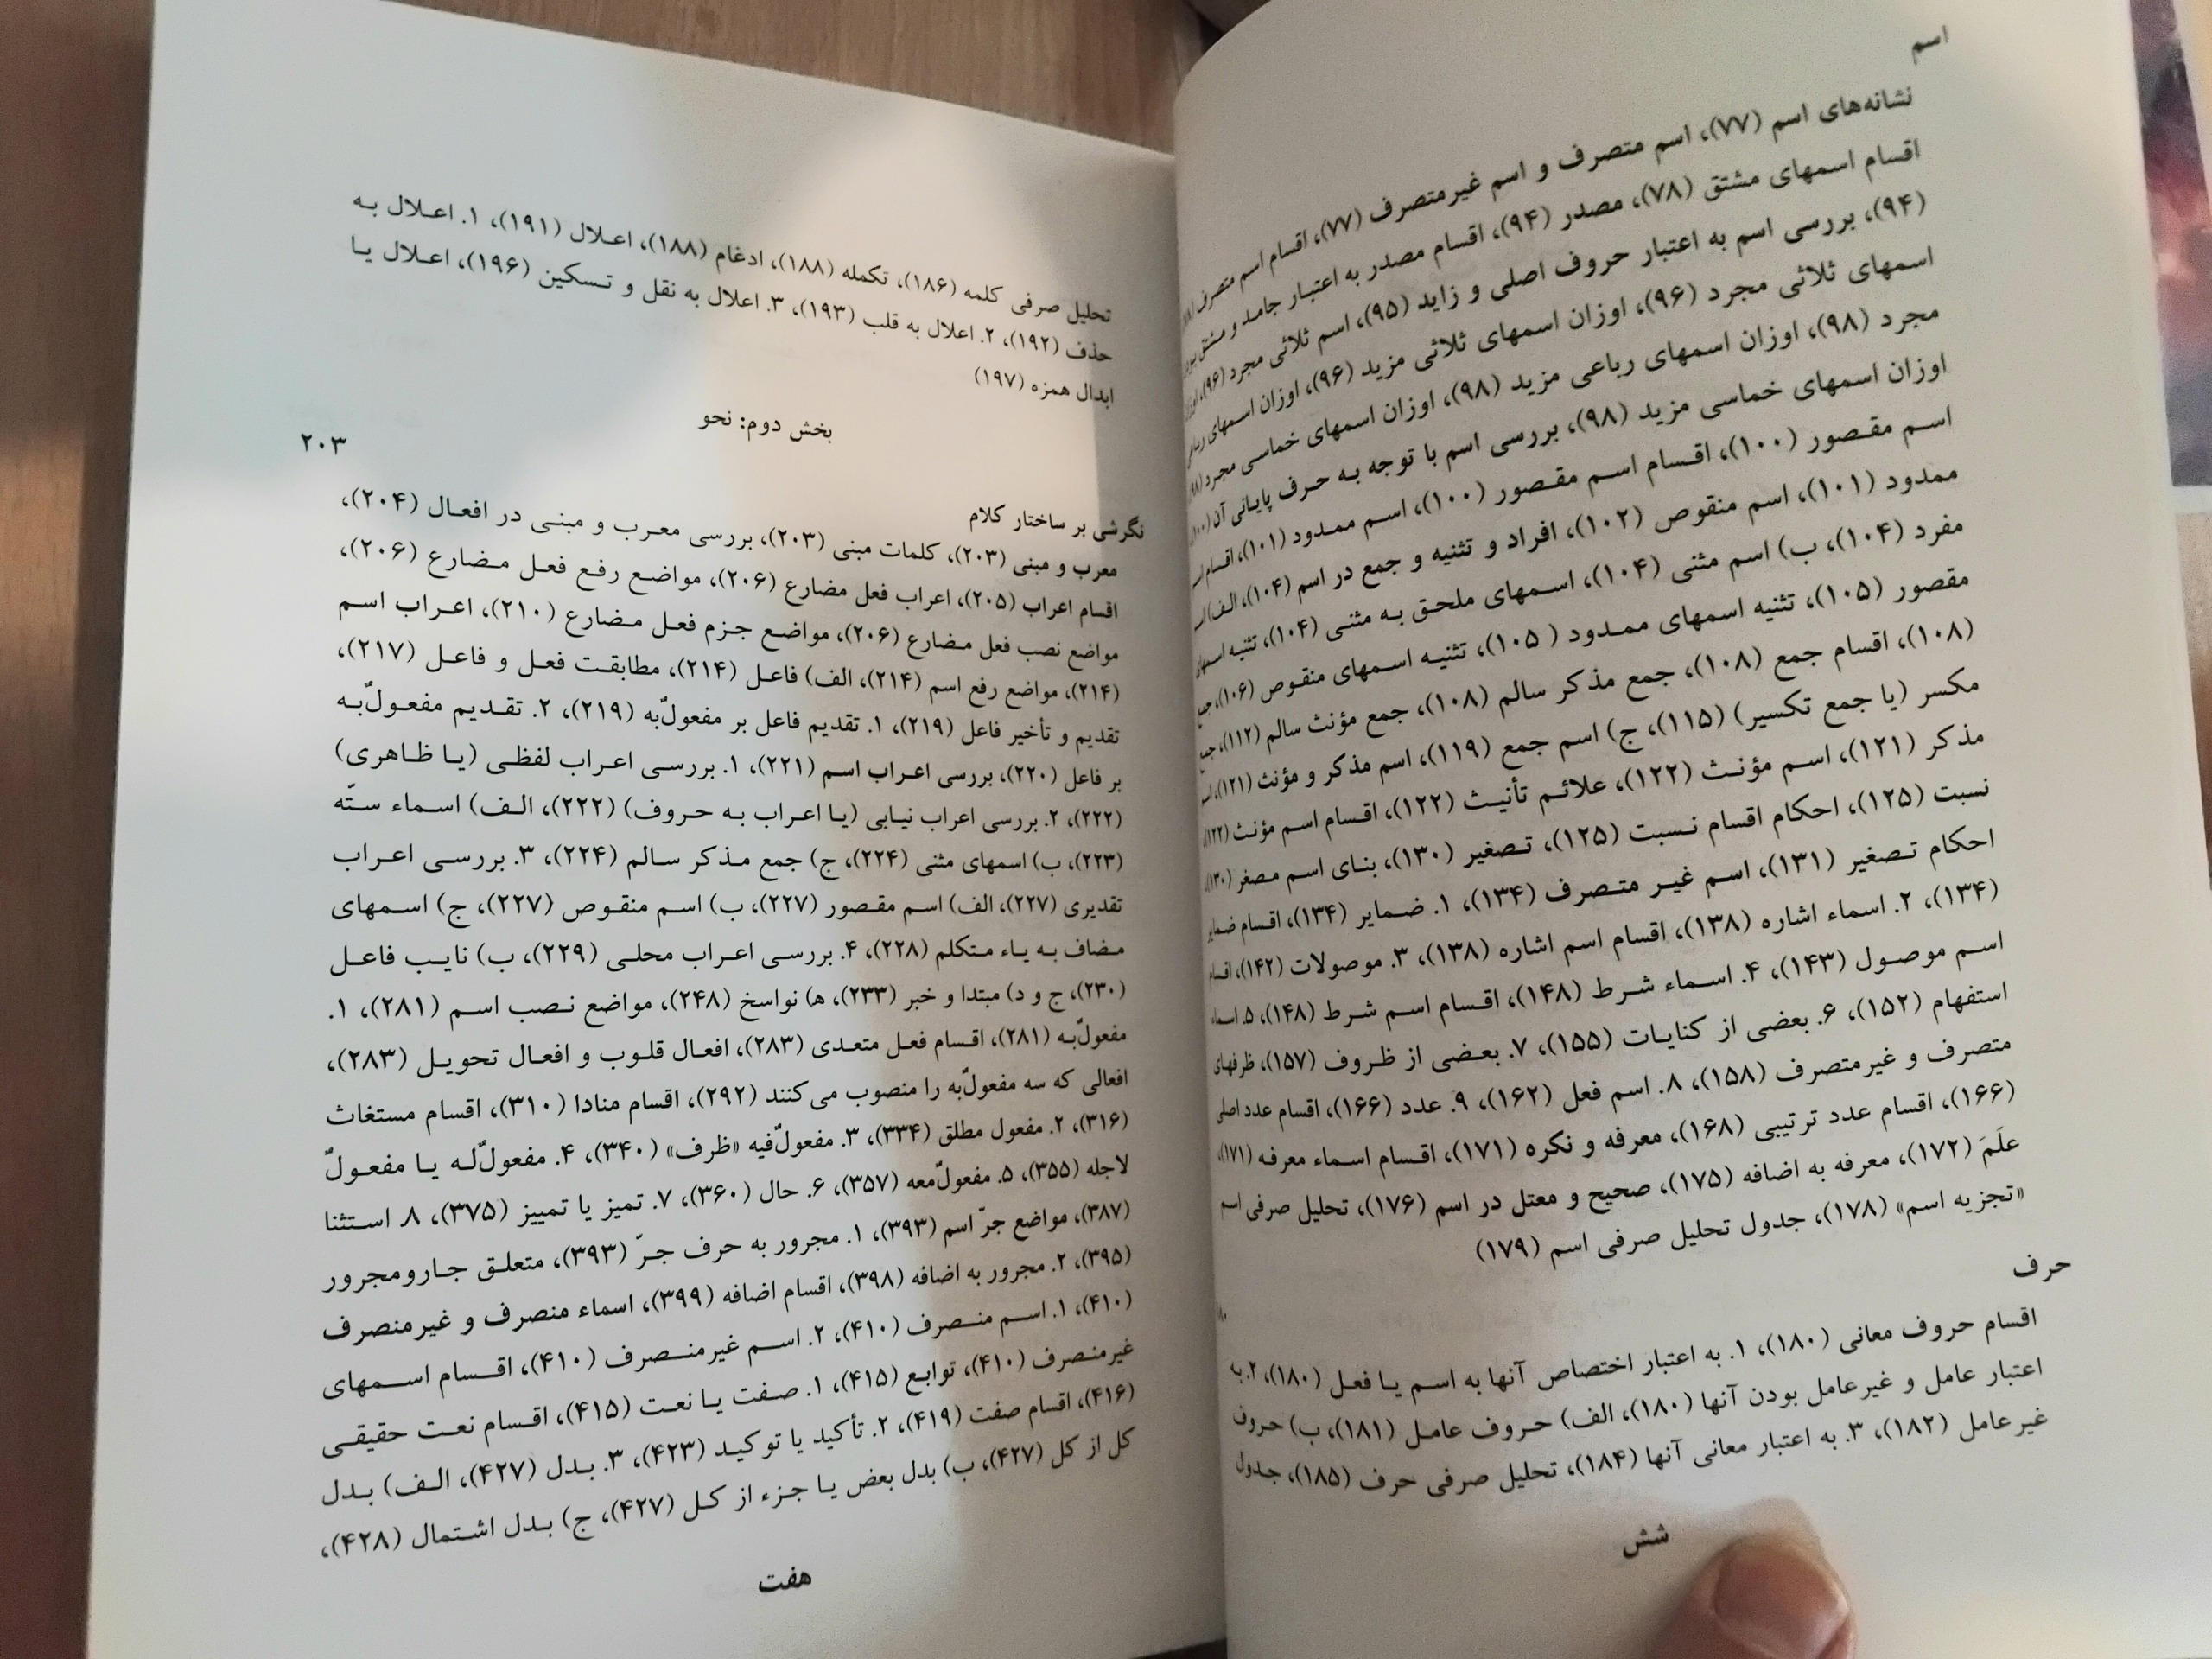 اسم
نشانه‌های اسم (۷۷)، اسم متصرف و اسم غیرمتصرف (۷۷)، اقسام اسم متصرف
اقسام اسمهای مشتق (۷۸)، مصدر (۹۴)، اقسام مصدر به اعتبار جامد و مشتق بودن
(۹۴)، بررسی اسم به اعتبار حروف اصلی و زاید (۹۵)، اسم ثلاثی مجرد (۹۶)،
اسمهای ثلاثی مجرد (۹۶)، اوزان اسمهای ثلاثی مزید (۹۶)، اوزان اسمهای رباعی
مجرد (۹۸)، اوزان اسمهای رباعی مزید (۹۸)، اوزان اسمهای خماسی مجرد (۹۸)
اوزان اسمهای خماسی مزید (۹۸)، بررسی اسم با توجه به حرف پایانی آن (۱۰۰)،
اسم مقصور (۱۰۰)، اقسام اسم مقصور (۱۰۰)، اسم ممدود (۱۰۱)، اقسام اسم
ممدود (۱۰۱)، اسم منقوص (۱۰۲)، افراد و تثنیه و جمع در اسم (۱۰۴)، الف)
مفرد (۱۰۴)، ب) اسم مثنی (۱۰۴)، اسمهای ملحق به مثنی (۱۰۴)، تثنیه اسمهای
مقصور (۱۰۵)، تثنیه اسمهای ممدود (۱۰۵)، تثنیه اسمهای منقوص (۱۰۶)، جمع
(۱۰۸)، اقسام جمع (۱۰۸)، جمع مذکر سالم (۱۰۸)، جمع مؤنث سالم (۱۱۲)، جمع
مکسر (یا جمع تکسیر) (۱۱۵)، ج) اسم جمع (۱۱۹)، اسم مذکر و مؤنث (۱۲۱)،
مذکر (۱۲۱)، اسم مؤنث (۱۲۲)، علائم تأنیث (۱۲۲)، اقسام اسم مؤنث (۱۲۲)،
نسبت (۱۲۵)، احکام اقسام نسبت (۱۲۵)، تصغیر (۱۳۰)، بنای اسم مصغر (۱۳۰)،
احکام تصغیر (۱۳۱)، اسم غیر متصرف (۱۳۴)، ۱. ضمایر (۱۳۴)، اقسام ضمایر
(۱۳۴)، ۲. اسماء اشاره (۱۳۸)، اقسام اسم اشاره (۱۳۸)، ۳. موصولات (۱۴۲)، اقسام
اسم موصول (۱۴۳)، ۴. اسماء شرط (۱۴۸)، اقسام اسم شرط (۱۴۸)، ۵. اسماء
استفهام (۱۵۲)، ۶. بعضی از کنایات (۱۵۵)، ۷. بعضی از ظروف (۱۵۷)، ظرفهای
متصرف و غیرمتصرف (۱۵۸)، ۸. اسم فعل (۱۶۲)، ۹. عدد (۱۶۶)، اقسام عدد اصلی
(۱۶۶)، اقسام عدد ترتیبی (۱۶۸)، معرفه و نکره (۱۷۱)، اقسام اسماء معرفه (۱۷۱)،
علَمَ (۱۷۲)، معرفه به اضافه (۱۷۵)، صحیح و معتل در اسم (۱۷۶)، تحلیل صرفی اسم
«تجزیه اسم» (۱۷۸)، جدول تحلیل صرفی اسم (۱۷۹)
حرف
اقسام حروف معانی (۱۸۰)، ۱. به اعتبار اختصاص آنها به اسم یا فعل (۱۸۰)، ۲. به
اعتبار عامل و غیرعامل بودن آنها (۱۸۰)، الف) حروف عامل (۱۸۱)، ب) حروف
غیرعامل (۱۸۲)، ۳. به اعتبار معانی آنها (۱۸۴)، تحلیل صرفی حرف (۱۸۵)، جدول
شش
تحلیل صرفی کلمه (۱۸۶)، تکمله (۱۸۸)، ادغام (۱۸۸)، اعلال (۱۹۱)، ۱. اعلال به
حذف (۱۹۲)، ۲. اعلال به قلب (۱۹۳)، ۳. اعلال به نقل و تسکین (۱۹۶)، اعلال یا
ابدال همزه (۱۹۷)
بخش دوم: نحو
نگرشی بر ساختار کلام ۲۰۳
معرب و مبنی (۲۰۳)، کلمات مبنی (۲۰۳)، بررسی معرب و مبنی در افعال (۲۰۴)،
اقسام اعراب (۲۰۵)، اعراب فعل مضارع (۲۰۶)، مواضع رفع فعل مضارع (۲۰۶)،
مواضع نصب فعل مضارع (۲۰۶)، مواضع جزم فعل مضارع (۲۱۰)، اعراب اسم
(۲۱۴)، مواضع رفع اسم (۲۱۴)، الف) فاعل (۲۱۴)، مطابقت فعل و فاعل (۲۱۷)،
تقدیم و تأخیر فاعل (۲۱۹)، ۱. تقدیم فاعل بر مفعولٌ‌به (۲۱۹)، ۲. تقدیم مفعولٌ‌به
بر فاعل (۲۲۰)، بررسی اعراب اسم (۲۲۱)، ۱. بررسی اعراب لفظی (یا ظاهری)
(۲۲۲)، ۲. بررسی اعراب نیابی (یا اعراب به حروف) (۲۲۲)، الف) اسماء ستّه
(۲۲۳)، ب) اسمهای مثنی (۲۲۴)، ج) جمع مذکر سالم (۲۲۴)، ۳. بررسی اعراب
تقدیری (۲۲۷)، الف) اسم مقصور (۲۲۷)، ب) اسم منقوص (۲۲۷)، ج) اسمهای
مضاف به یاء متکلم (۲۲۸)، ۴. بررسی اعراب محلی (۲۲۹)، ب) نایب فاعل
(۲۳۰)، ج و د) مبتدا و خبر (۲۳۳)، ه) نواسخ (۲۴۸)، مواضع نصب اسم (۲۸۱)، ۱.
مفعولٌ‌به (۲۸۱)، اقسام فعل متعدی (۲۸۳)، افعال قلوب و افعال تحویل (۲۸۳)،
افعالی که سه مفعولٌ‌به را منصوب می‌کنند (۲۹۲)، اقسام منادا (۳۱۰)، اقسام مستغاث
(۳۱۶)، ۲. مفعول مطلق (۳۳۴)، ۳. مفعولٌ‌فیه «ظرف» (۳۴۰)، ۴. مفعولٌ‌له یا مفعولٌ
لاجله (۳۵۵)، ۵. مفعولٌ‌معه (۳۵۷)، ۶. حال (۳۶۰)، ۷. تمیز یا تمییز (۳۷۵)، ۸. استثنا
(۳۸۷)، مواضع جرّ اسم (۳۹۳)، ۱. مجرور به حرف جرّ (۳۹۳)، متعلق جارومجرور
(۳۹۵)، ۲. مجرور به اضافه (۳۹۸)، اقسام اضافه (۳۹۹)، اسماء منصرف و غیرمنصرف
(۴۱۰)، ۱. اسم منصرف (۴۱۰)، ۲. اسم غیرمنصرف (۴۱۰)، اقسام اسمهای
غیرمنصرف (۴۱۰)، توابع (۴۱۵)، ۱. صفت یا نعت (۴۱۵)، اقسام نعت حقیقی
(۴۱۶)، اقسام صفت (۴۱۹)، ۲. تأکید یا توکید (۴۲۳)، ۳. بدل (۴۲۷)، الف) بدل
کل از کل (۴۲۷)، ب) بدل بعض یا جزء از کل (۴۲۷)، ج) بدل اشتمال (۴۲۸)،
هفت